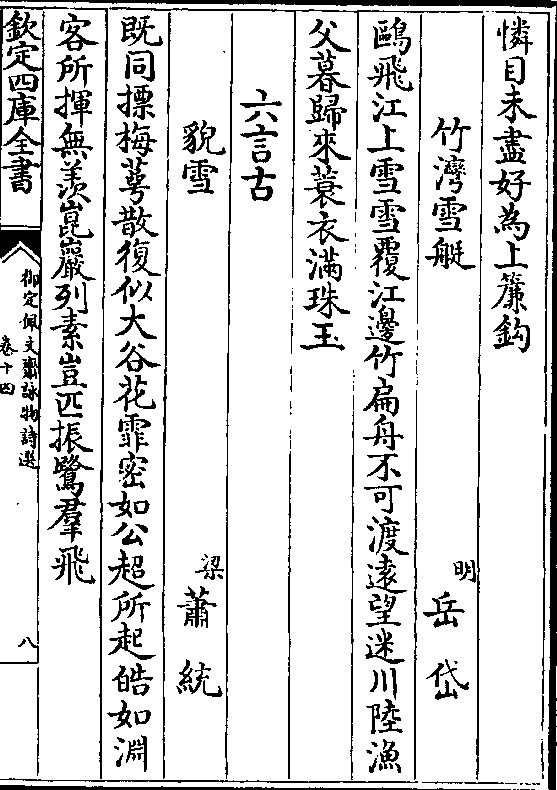 憐目未盡好為上簾鈎
竹灣雪艇 明 岳岱
鷗飛江上雪雪覆江邊竹扁舟不可渡遠望迷川陸漁
父暮歸來蓑衣滿珠玉
六言古
貌雪 梁 蕭統
既同摽梅萼散復似大谷花霏密如公超所起皓如淵
客所揮無羨崑巖列素豈匹振鷺羣飛
欽定四庫全書
御定佩文齋詠物詩選
卷十四
八